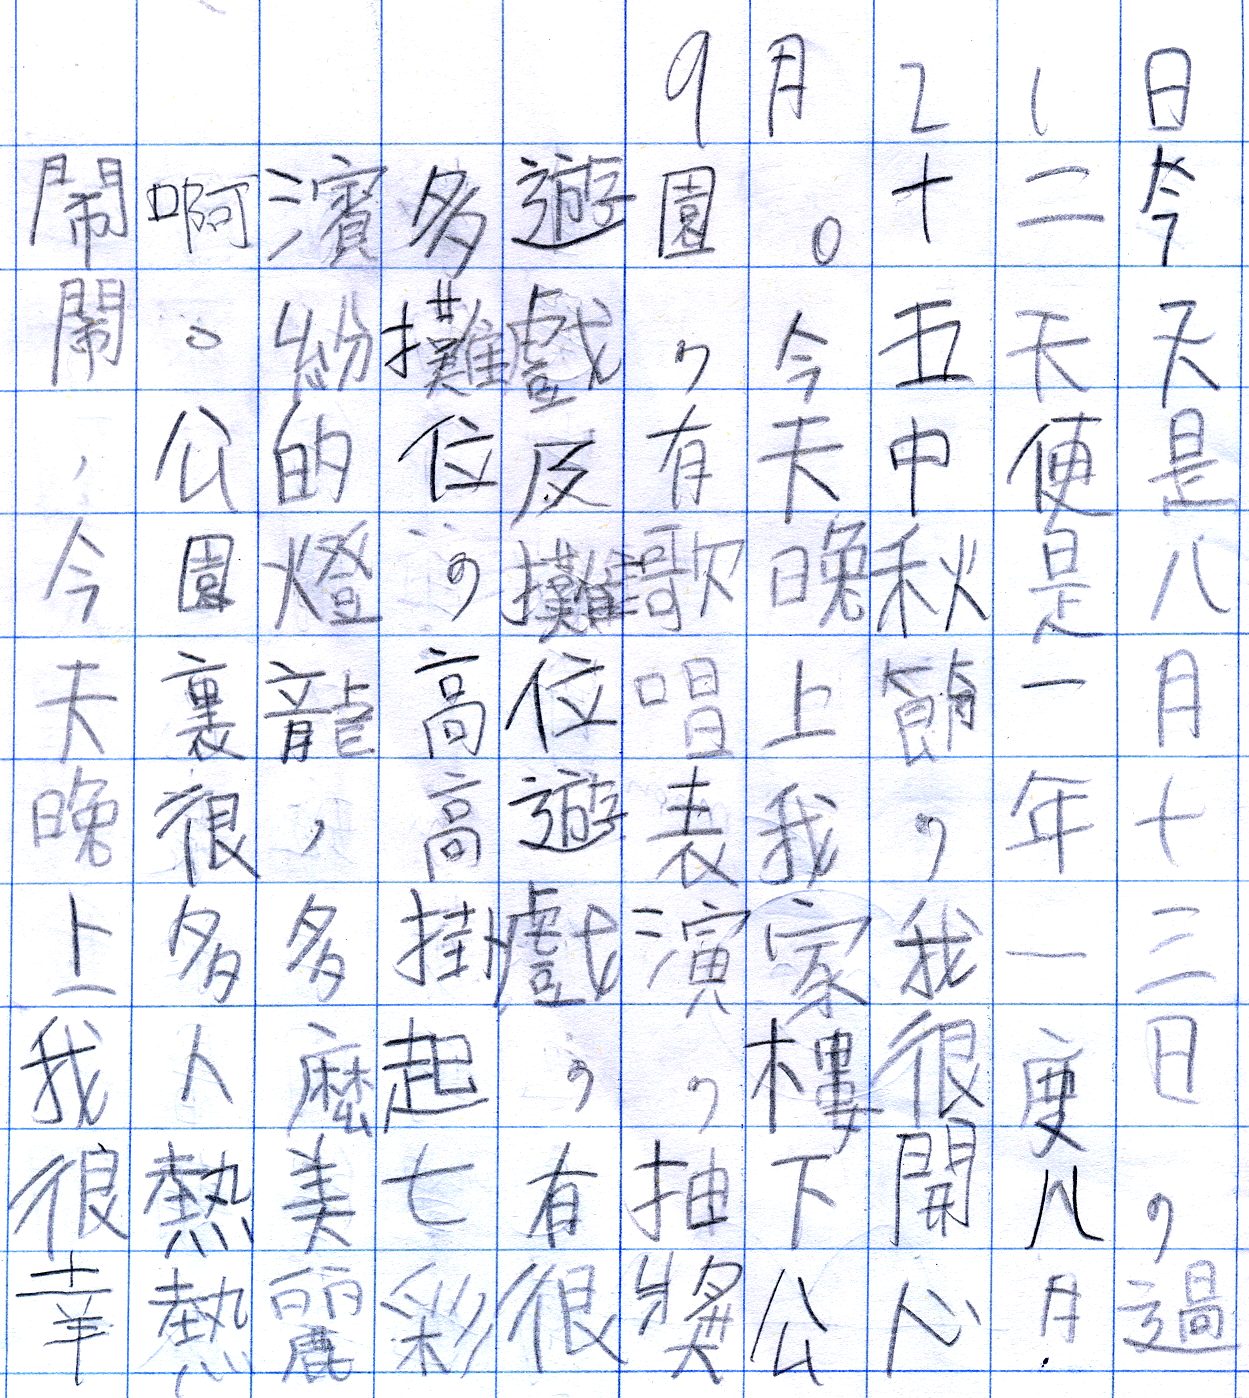 9月21日
今天是八月十三日，過
二天便是一年一度八月
十五中秋節，我很開心
。今天晚上我家樓下公
園，有歌唱表演，抽獎
遊戲及攤位遊戲，有很
多攤位，高高掛起七彩
濱紛的燈龍，多麼美麗
啊。公園裏很多人熱熱
鬧鬧，今天晚上我很幸